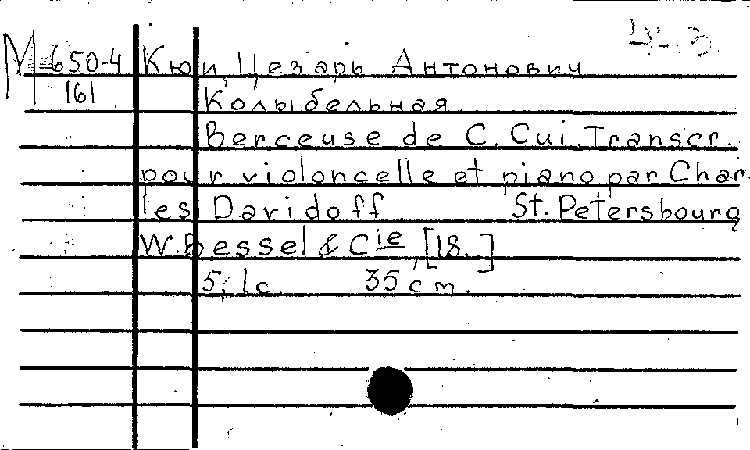 М 650-4 Кюи, Цезарь Антонович
161 Колыбельная.
Berceuse de C. Cui. Transcr.
pour violoncelle et piano par Char
les Davidoff St. Petersbourg
W. Bessel & Cie, [18..]
5, 1 с. 35 cm.